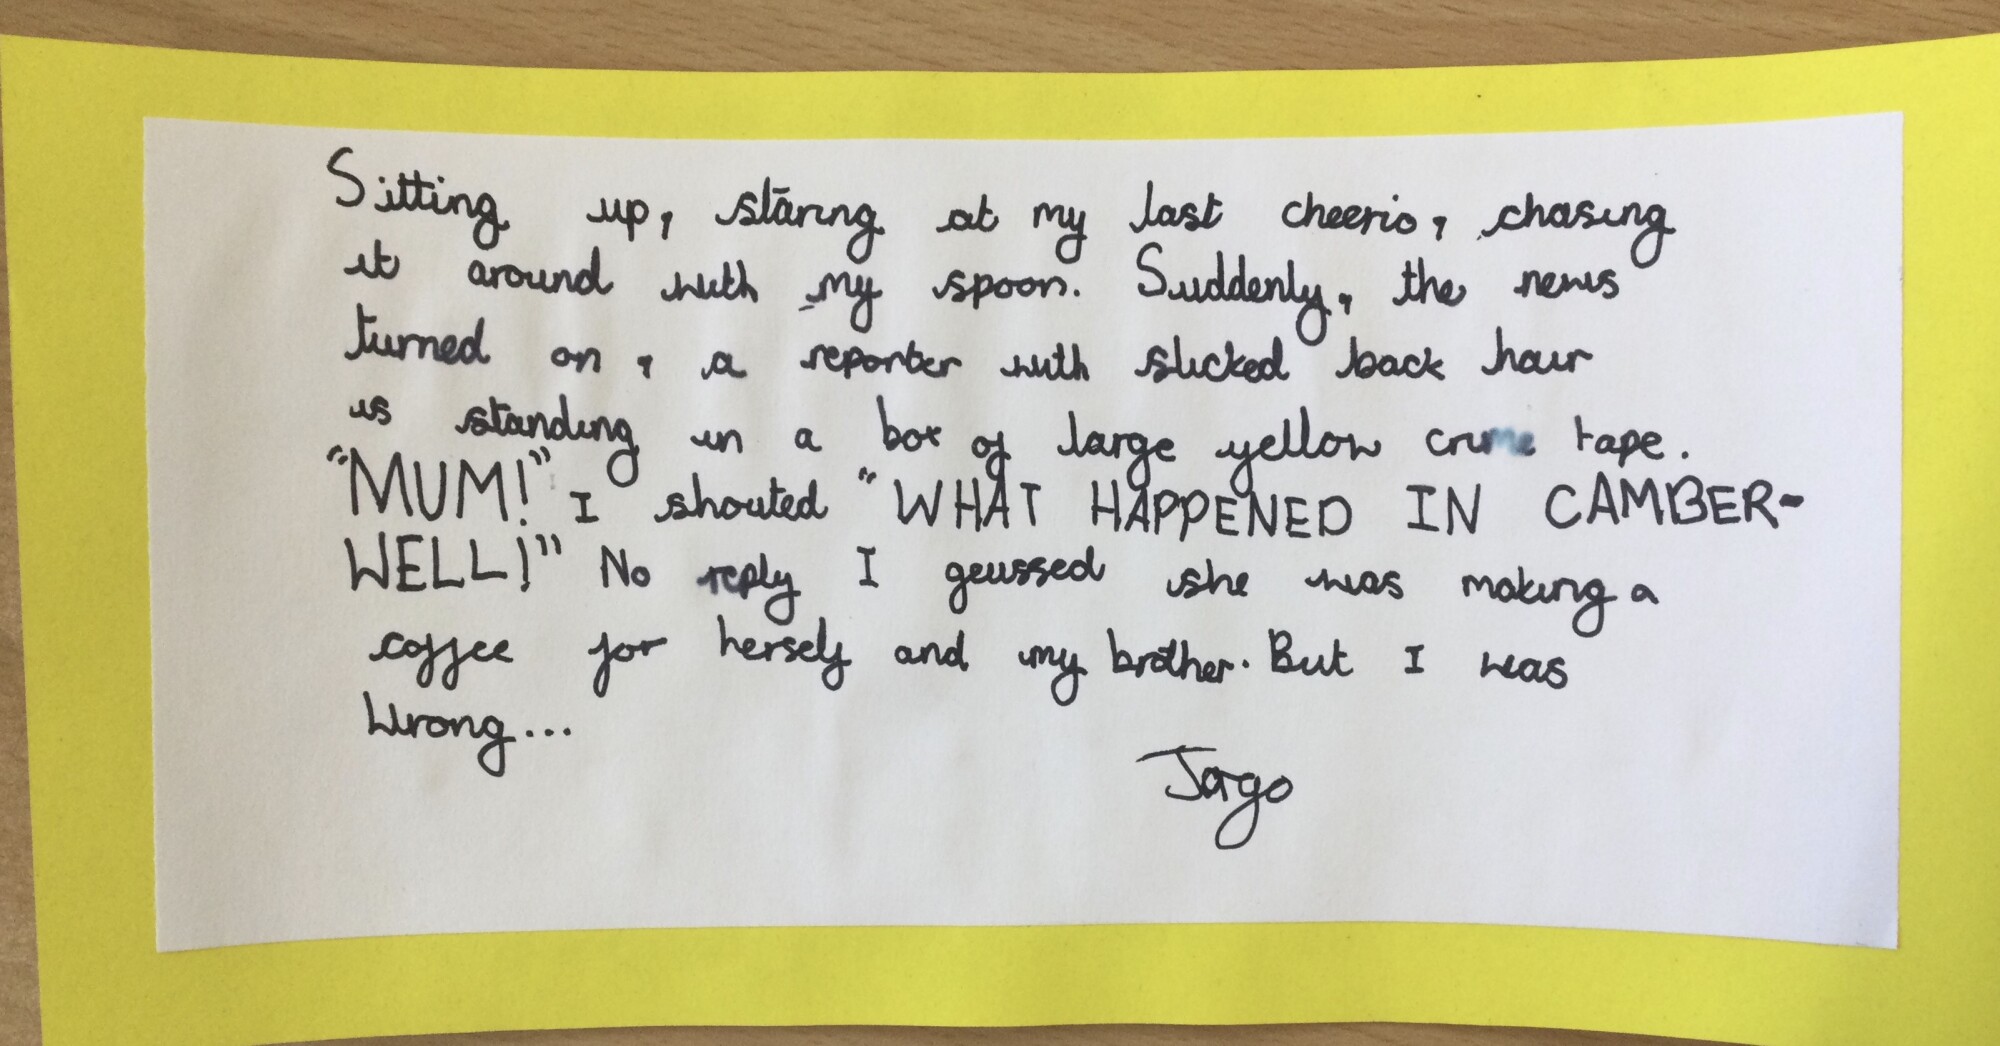 Sitting up, staring at my last cheerio, chasing
it around with my spoon. Suddenly, the news
turned on, a reporter with slicked back hair
is standing in a box of large yellow crime tape.
"MUM!" I shouted "WHAT HAPPENED IN CAMBER-
WELL!" No reply I geussed she was making a
coffee for herself and my brother. But I was
wrong...
Jago